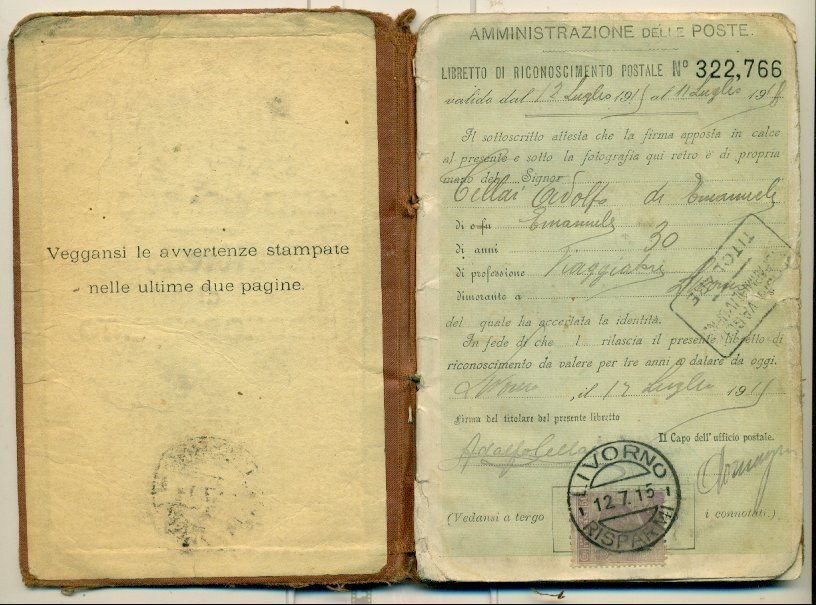 Veggansi le avvertenze stampate
nelle ultime due pagine.
AMMINISTRAZIONE DELLE POSTE.
LIBRETTO DI RICONOSCIMENTO POSTALE N° 322,766
valido dal 12 Luglio 1915 al 11 Luglio 1918
Il sottoscritto attesta che la firma apposta in calce
al presente e sotto la fotografia qui retro è di propria
mano del Signor
Cellai Adolfo di Emanuele
di Emanuele
di anni 30
di professione Viaggiatore
dimorante a Livorno
del quale ha accertata la identità.
In fede di che rilascia il presente libretto di
riconoscimento da valere per tre anni a datare da oggi.
Livorno, il 12 Luglio 1915
Firma del titolare del presente libretto
Il Capo dell'ufficio postale.
Adolfo Cellai
(Vedansi a tergo i connotati.)
TITOLARE
LIVORNO
1 12.7.15 1
RISPARMI